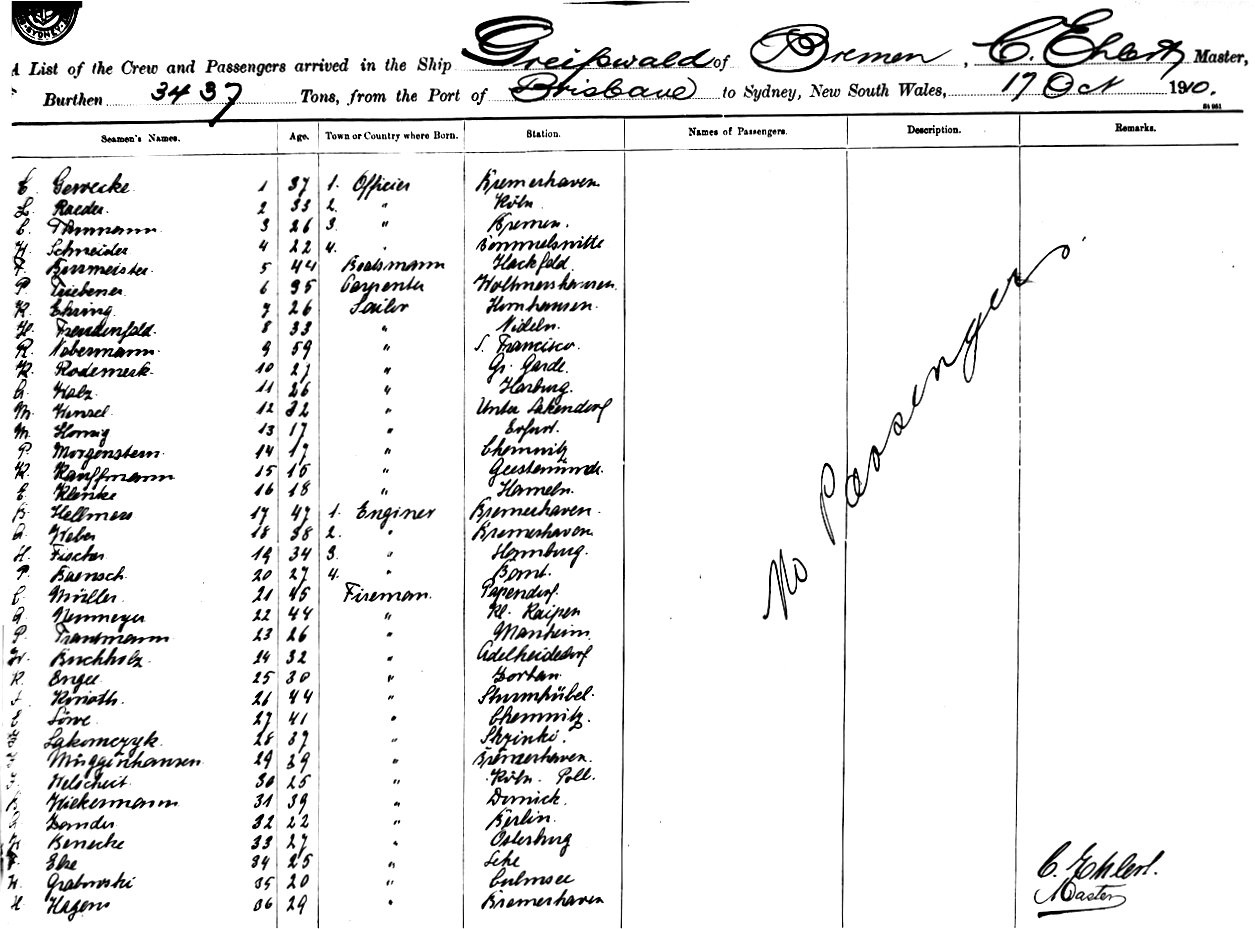 SYDNEY
A List of the Crew and Passengers arrived in the Ship Greifswald of Bremen, C. Ehlert Master,
Burthen 3437 Tons, from the Port of Brisbane to Sydney, New South Wales, 17 Oct 1910.
Seamen's Names. Age. Town or Country where Born. Station. Names of Passengers. Description. Remarks.
Gewecke 1 37 1. Officier Bremerhaven
L. Raeder 2 33 2. " Köln
3 26 3. " Bremen.
H. Schneider 4 22 4. " Bommelsvitte
F. Burmeister 5 44 Bootsmann Hackfeld
P. Triebener 6 35 Carpenter Woltmershausen
K. Ehring 7 26 Sailor Hornhausen
H. Freudenfeld. 8 33 " Nideln.
R. Nabermann 9 59 " S. Francisco.
K. Rodemerk. 10 27 " Gr. Garde.
11 26 " Harburg.
M. Hensel 12 32 " Unter
M. Hornig 13 17 " Erfurt.
P. Morgenstern 14 17 " Chemnitz
K. Kauffmann 15 15 " Geestemünde.
E. Klenke 16 18 " Hameln.
B. Hellmers 17 47 1. Enginer Bremerhaven.
A. Weber 18 38 2. " Bremerhaven
H. Fischer 19 34 3. " Homburg.
P. Baensch 20 27 4. " Bomt.
C. Müller 21 45 Fireman. Papendorf.
A. Nemmeyer 22 44 " Kl. Raipen
P. Trautmann 23 26 " Manheim
W. Buchholz 24 32 " Adelheidsdorf
R. Engel 25 30 "
Kinoth. 26 44 " Sturmhübel.
Löwe 27 41 " Chemnitz.
Lakomczyk. 28 37 " Skzinki.
Müggenhausen 29 29 " Bremerhaven.
Welscheit 30 25 " Köln. Poll.
Wiekermann 31 39 " Dornick.
32 22 " Berlin.
Benecke 33 27 " Osterburg
Else 34 25 " Lehe
Grabowski 35 20 " Culmsee
H. Hagens 36 29 " Bremerhaven
No Passengers.
C. Ehlert.
Master